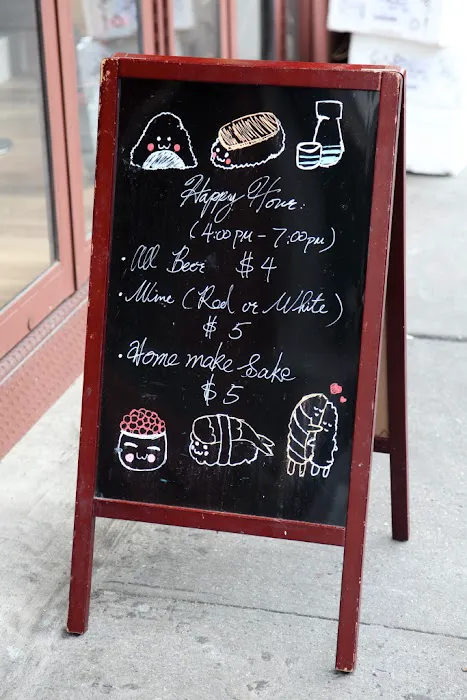 Happy Hour:
(4:00pm - 7:00pm)
• All Beer $4
• Wine (Red or White)
$5
• Home make Sake
$5